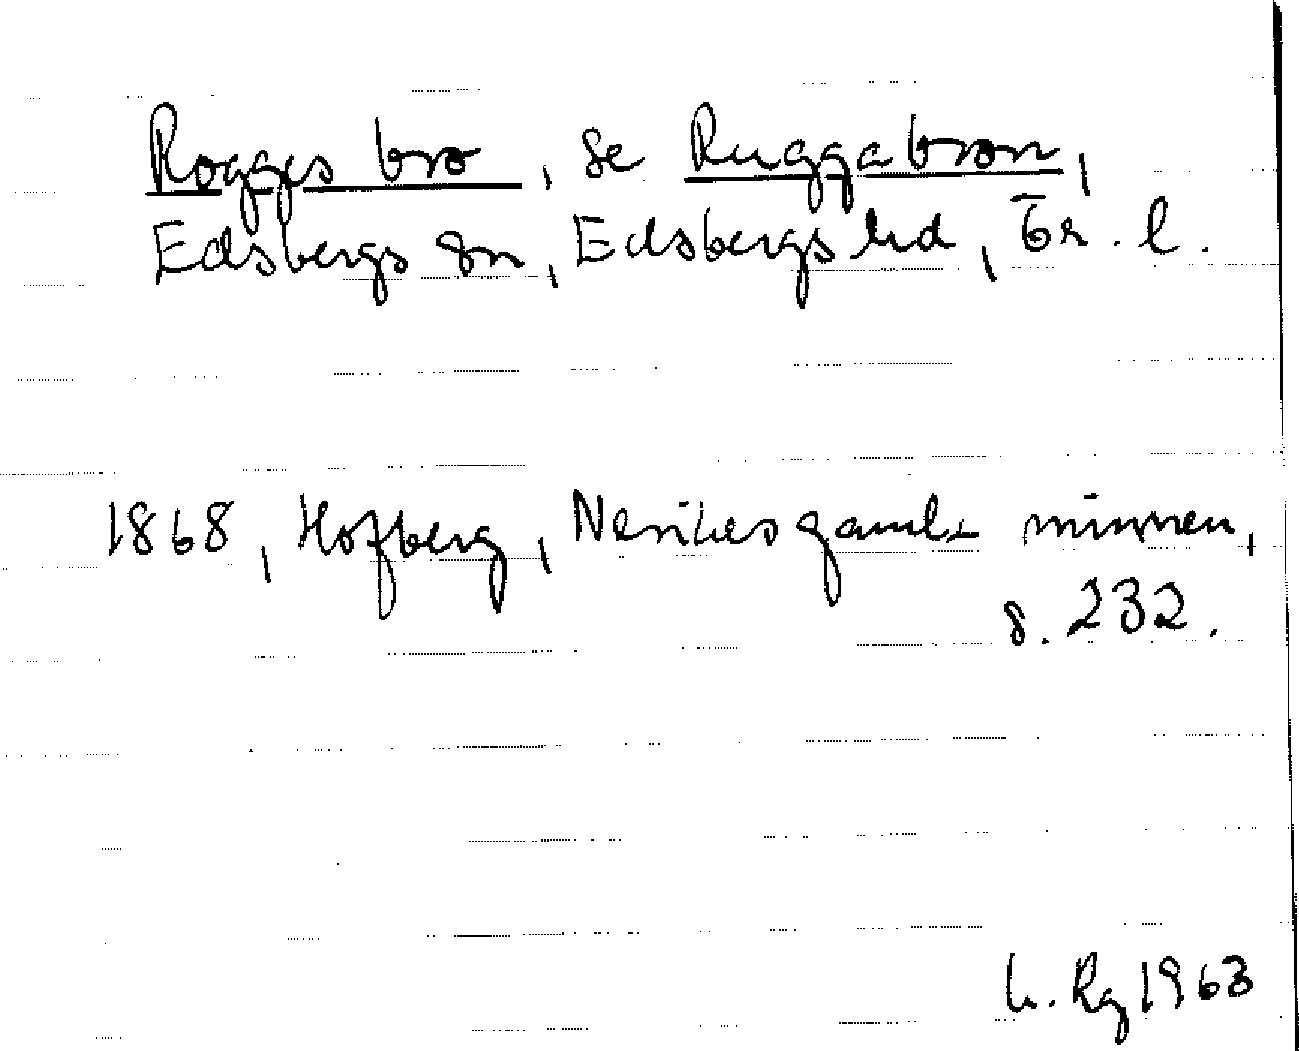 Rogges bro, se Ruggabron,
Edsbergs sn, Edsbergs hd, Ör. l.
1868, Hofberg, Nerikes gamla minnen,
s. 232.
h. Rg 1963